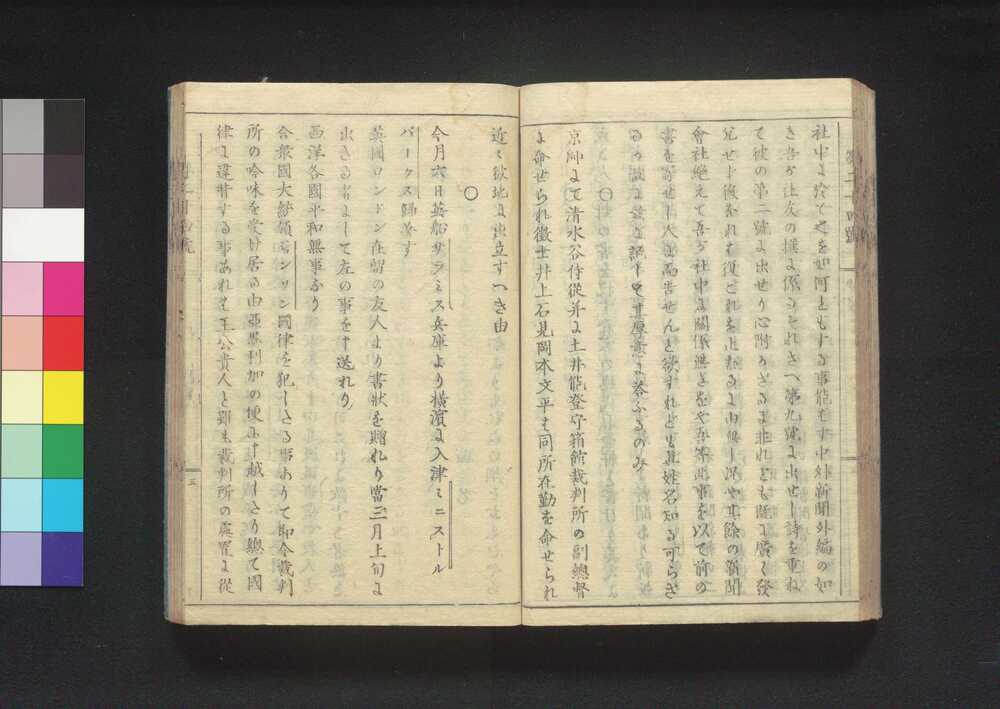 社中に於て之を如何ともする事能はず中外新聞外編の如
き吾が社友の撰に係るそれさへ第九號に出せし詩を重ね
て彼の第二號に出せり心附かざるに非れども既に廣く發
兌せし後なれば復これを止むるに由無し况や其餘の新聞
會社絶えて吾が社中に關係無きをや吾等此事を以て前の
書を寄せし人に面告せんと欲すれども其姓名知る可らざ
るの間に茲に記して其厚意に答ふるのみ
〇
京師にて清水谷侍從并に土井能登守箱館裁判所の副總督
に命せられ徴士井上石見岡本文平も同所在勤を命せられ
近々彼地に出立すへき由
〇
今月六日英船サラミス兵庫より横濱に入津ミニストル
パークス歸着す
英國ロンドン在留の友人より書状を贈れり當三月上旬に
出せる者にして左の事を申送れり
西洋各國平和無事なり
合衆國大統領ジョンソン國律を犯したる事ありて即今裁判
所の吟味を受け居る由亞墨利加の便に申越したり總て國
律に違背する事あれは王公貴人と雖も裁判所の處置に從
第二十四號
三